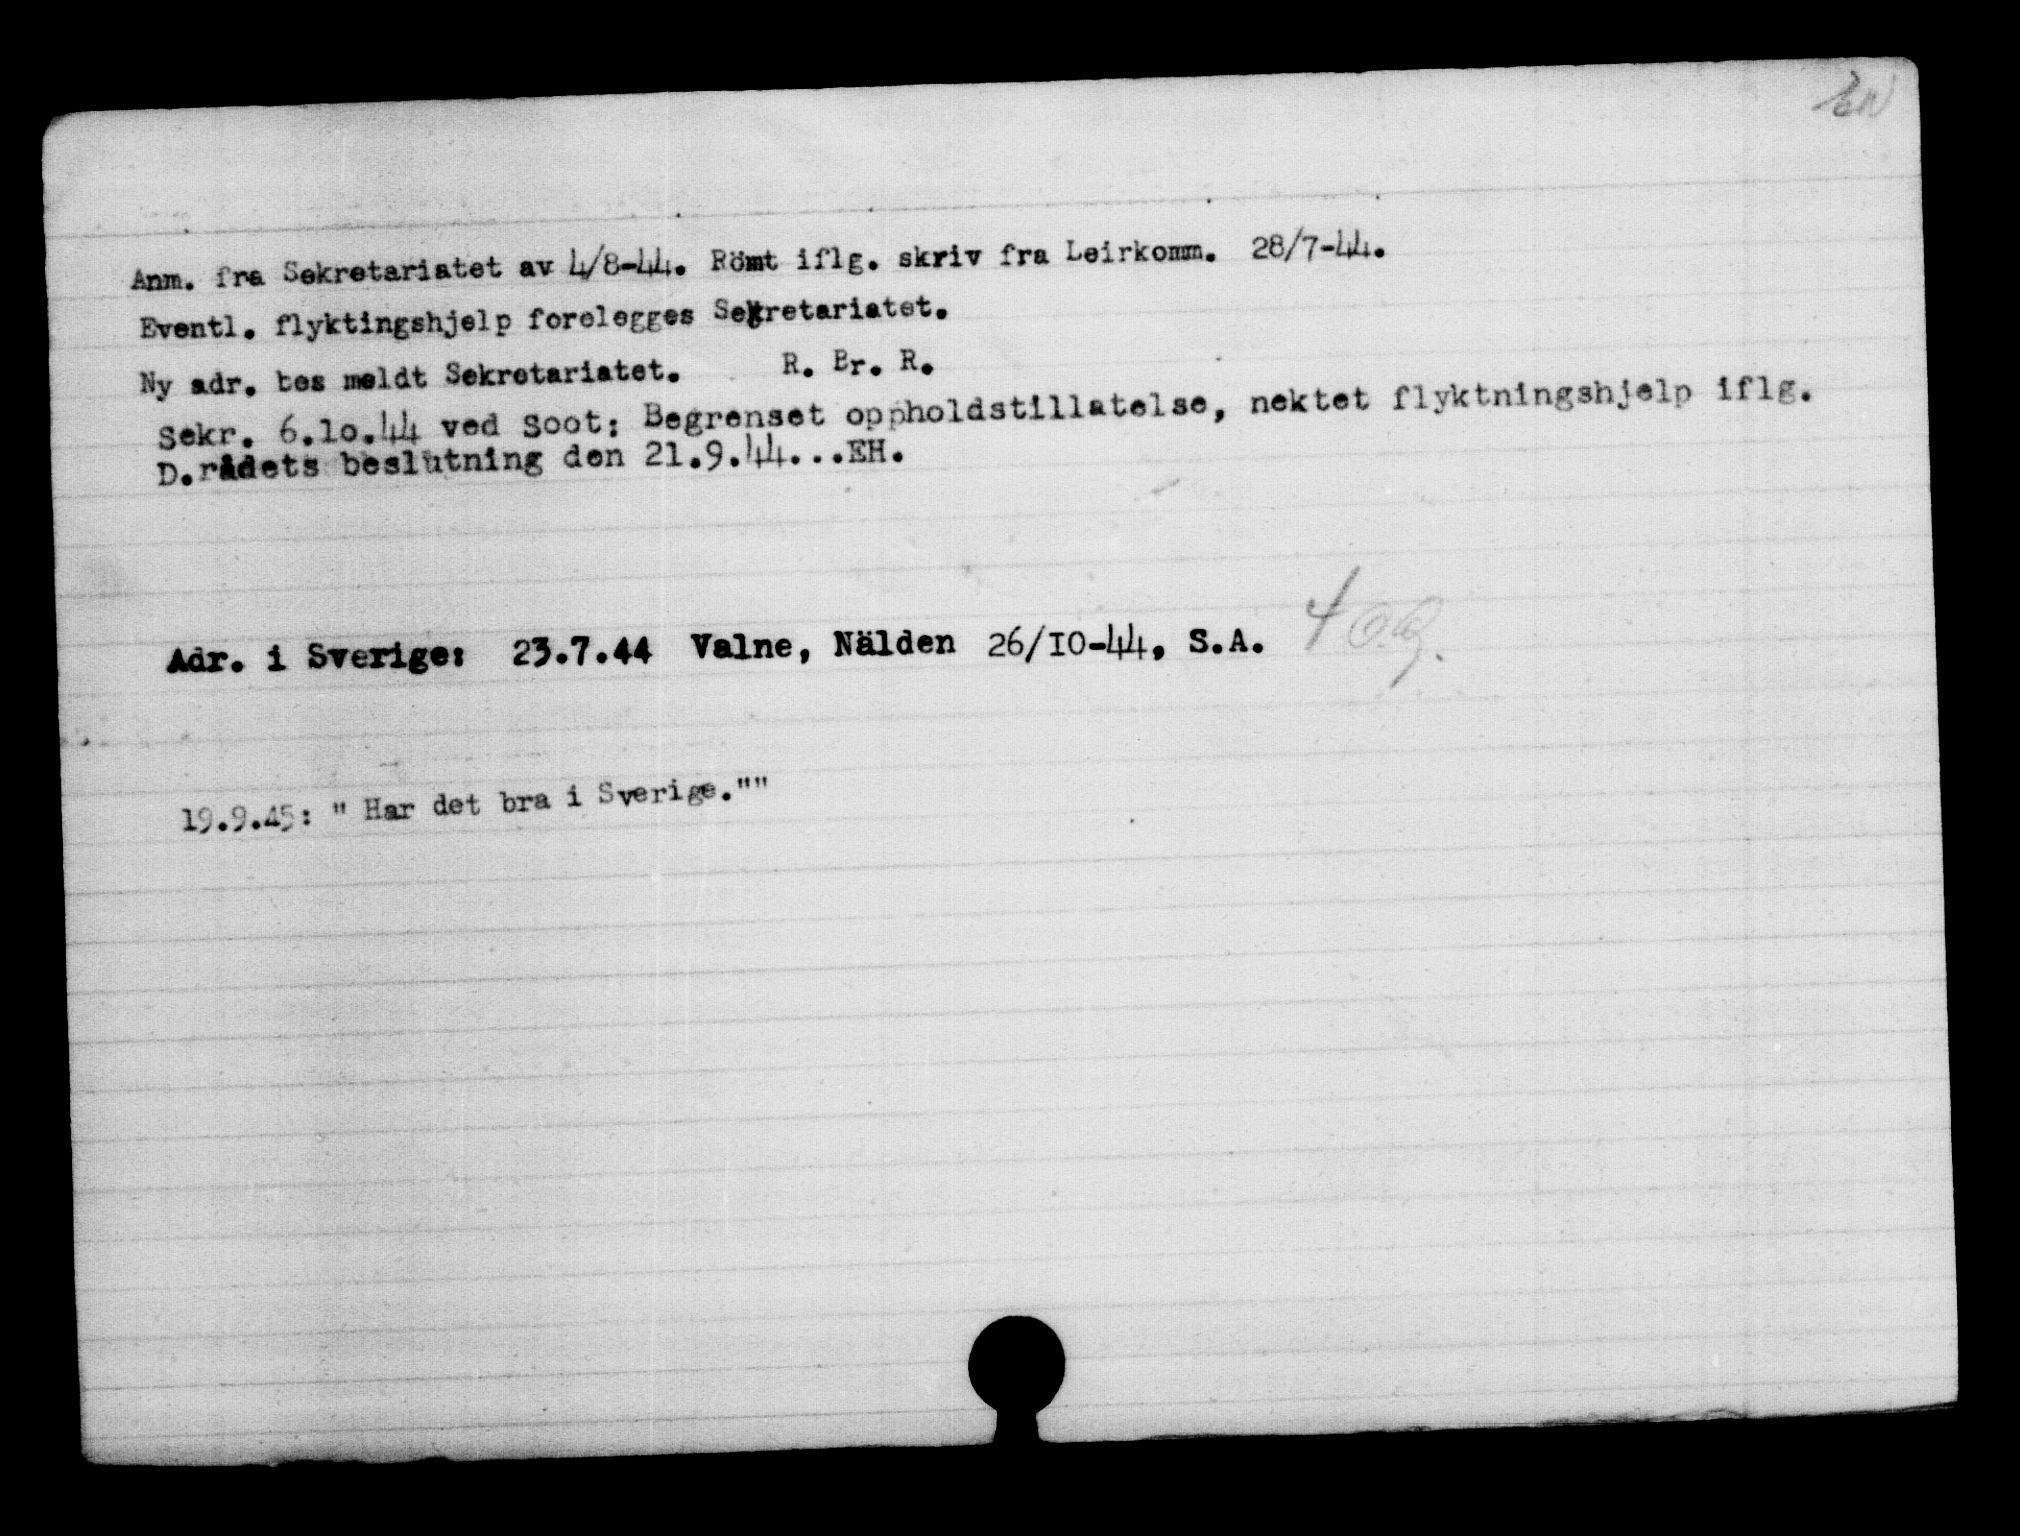 Anm. fra Sekretariatet av 4/8-44. Römt iflg. skriv fra Leirkomm. 28/7-44.
Eventl. flyktingshjelp forelegges Sekretariatet.
Ny adr. bes meldt Sekretariatet. R. Br. R.
Sekr. 6.10.44 ved Soot: Begrenset oppholdstillatelse, nektet flyktningshjelp iflg.
D.rådets beslutning den 21.9.44...EH.
Adr. i Sverige: 23.7.44 Valne, Nälden 26/IO-44, S.A.
19.9.45: " Har det bra i Sverige.""